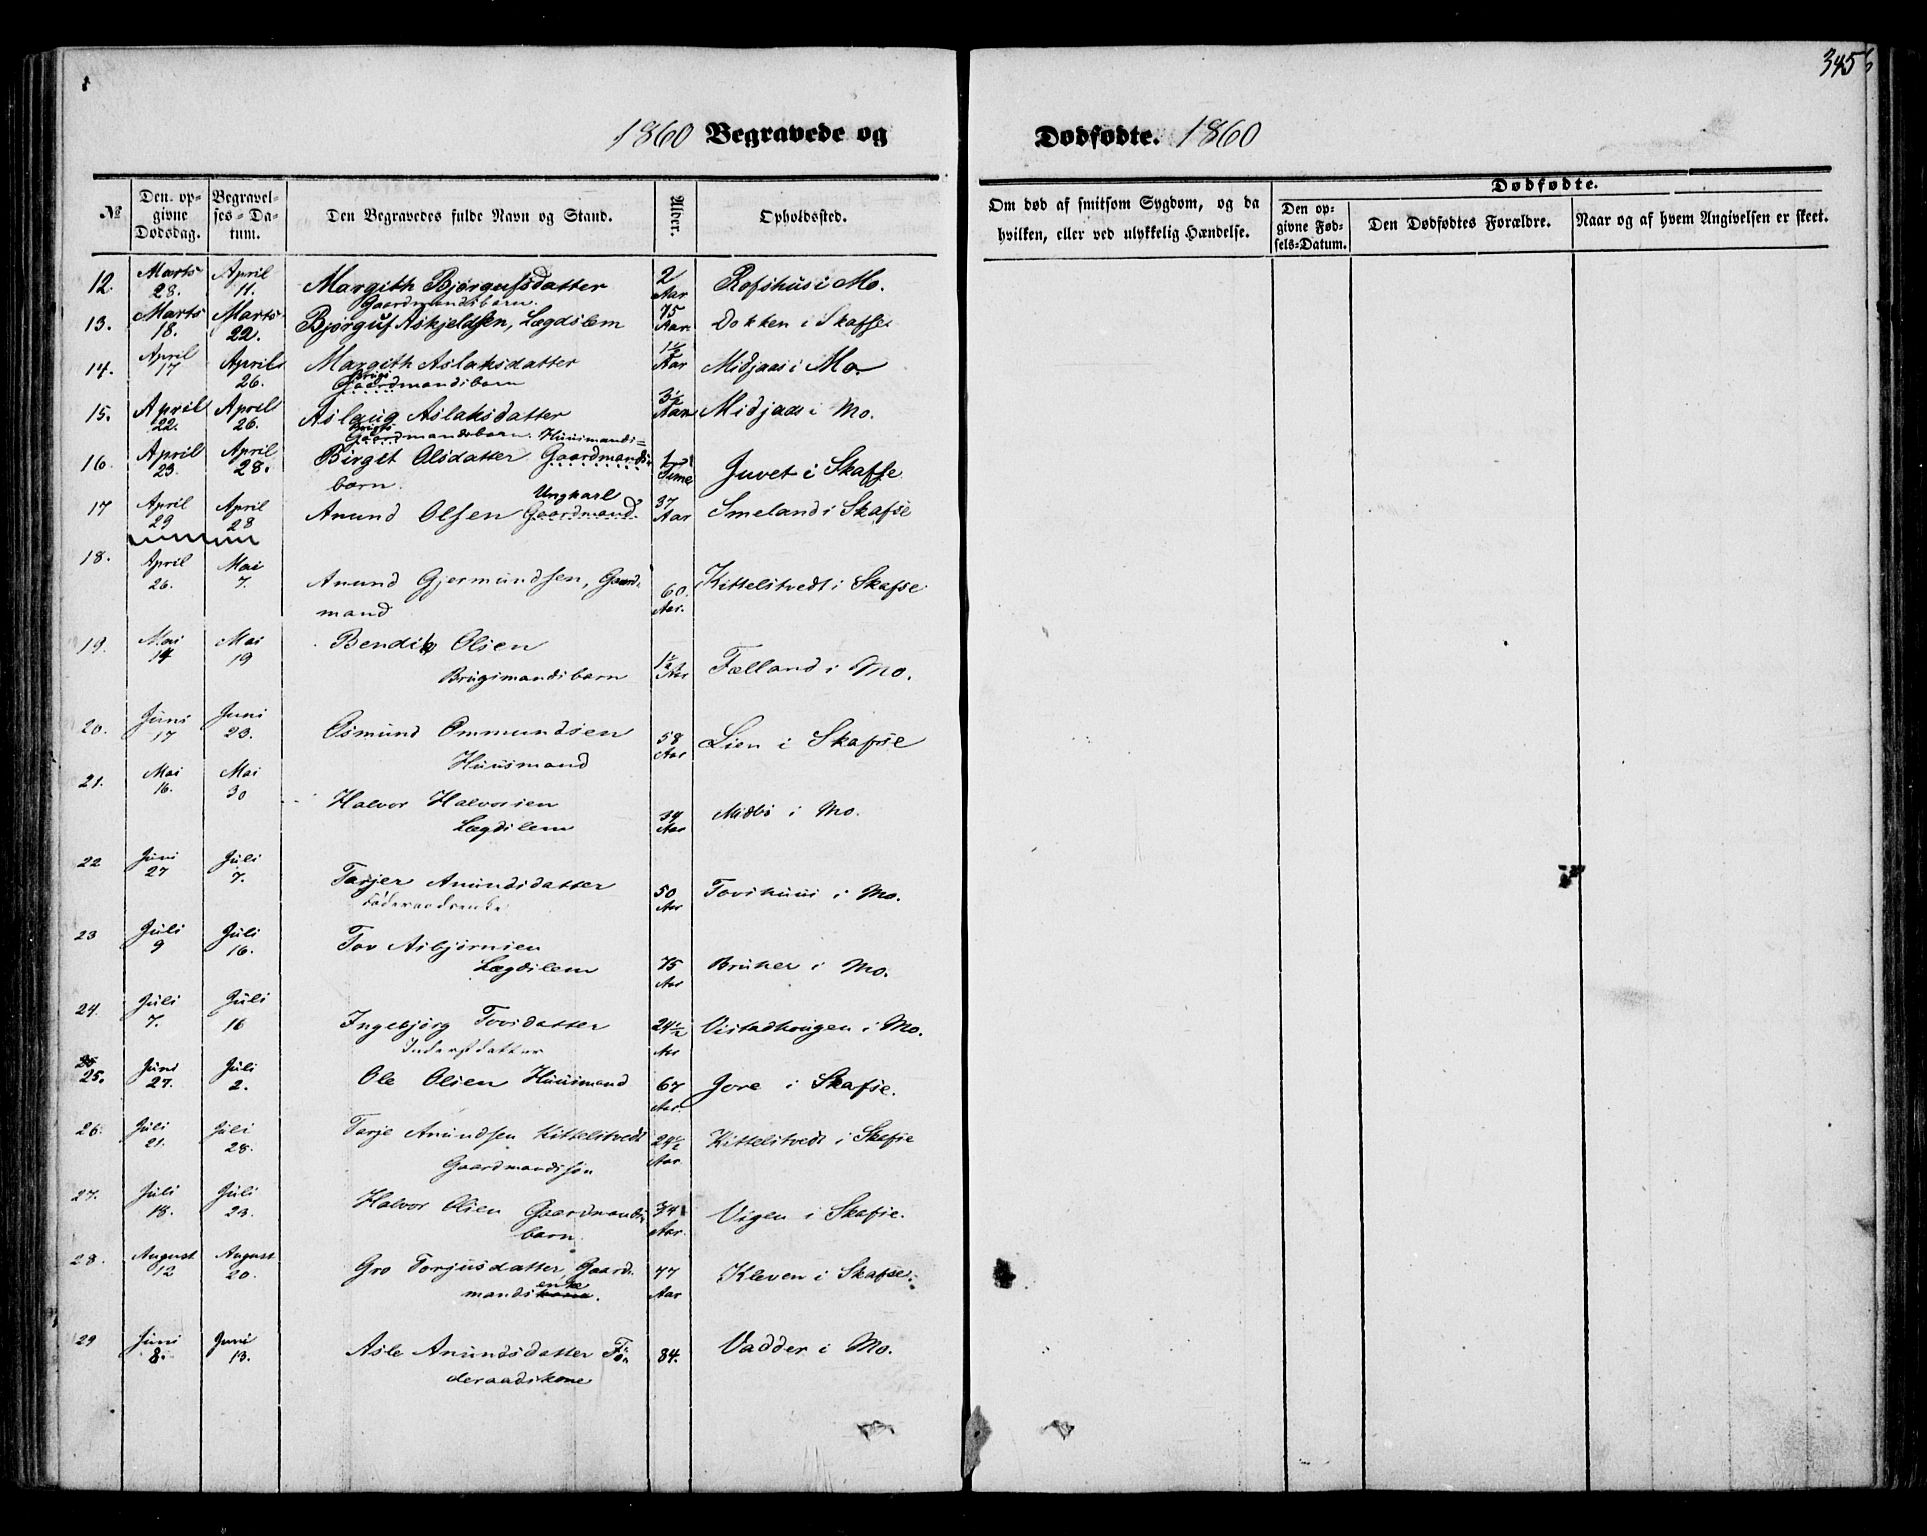 345
1860 Begravede og
Dødfødte. 1860
№
Den op-
givne
Dødsdag.
Begravel-
ses-Da-
tum.
Den Begravedes fulde Navn og Stand.
Alder.
Opholdssted.
Om død af smitsom Sygdom, og da
hvilken, eller ved ulykkelig Hændelse.
Dødfødte.
Den op-
givne Fød-
sels-Datum.
Den Dødfødtes Forældre.
Naar og af hvem Angivelsen er skeet.
12. Marts 28. April 11. Margith Bjørgufsdatter 2 Aar Rofshus i Mo.
Gaardmandsbarn.
13. Marts 18. Marts 22. Bjørguf Askjeldsen, Lægdslem 75 Aar Dokken i Skafse
14. April 17 April 26. Margith Aslaksdatter 1½ Aar Midjaas i Mo.
Brugs
Gaardmandsbarn
15. April 22. April 26. Aslaug Aslaksdatter 3½ Aar Midjaas i Mo.
Brugs
Gaardmandsbarn. Huusmands-
16. April 23. April 28. Birget Olsdatter Gaardmands- 1 Time Juvet i Skafse
barn.
Ungkarl
17 April 29 April 28 Anund Olsen Gaardmand. 37 Aar Smeland i Skafse
18. April 26. Mai 7. Anund Gjermundsen, Gaard- 60. Aar. Kittelstvedt i Skafse
mand
19. Mai 14 Mai 19 Bendik Olsen 1½ Aar Fælland i Mo.
Brugsmandsbarn
20. Juni 17 Juni 23. Osmund Ommundsen 58 Aar Lien i Skafse
Huusmand
21. Mai 16. Mai 30 Halvor Halvorsen 34 Aar Midbø i Mo.
Lægdslem
22 Juni 27 Juli 7. Tarjer Anundsdatter 50 Aar Tovshuus i Mo.
Föderaadsenke
23 Juli 9 Juli 16. Tov Asbjørnsen 75 Aar Bruker i Mo.
Lægdslem
24. Juli 7. Juli 16 Ingebjørg Tovsdatter 24½ Aar Vistadhougen i Mo.
Inderstdatter
25. Juni 27. Juli 2. Ole Olsen Huusmand 67 Aar. Jore i Skafse.
26. Juli 21. Juli 28. Tarje Anundsen Kittelstvedt 24½ Aar Kittelstvedt i Skafse
Gaardmandssøn
27. Juli 18. Juli 23. Halvor Olsen Gaardmands- 3/4 Aar. Vigen i Skafse.
barn.
28. August 12 August 20. Gro Torjusdatter, Gaard- 77 Aar Kleven i Skafse.
enke
mandskone.
29 Juni 8. Juni 13. Asle Anundsdatter Fö- 84. Vadder i Mo.
deraadskone